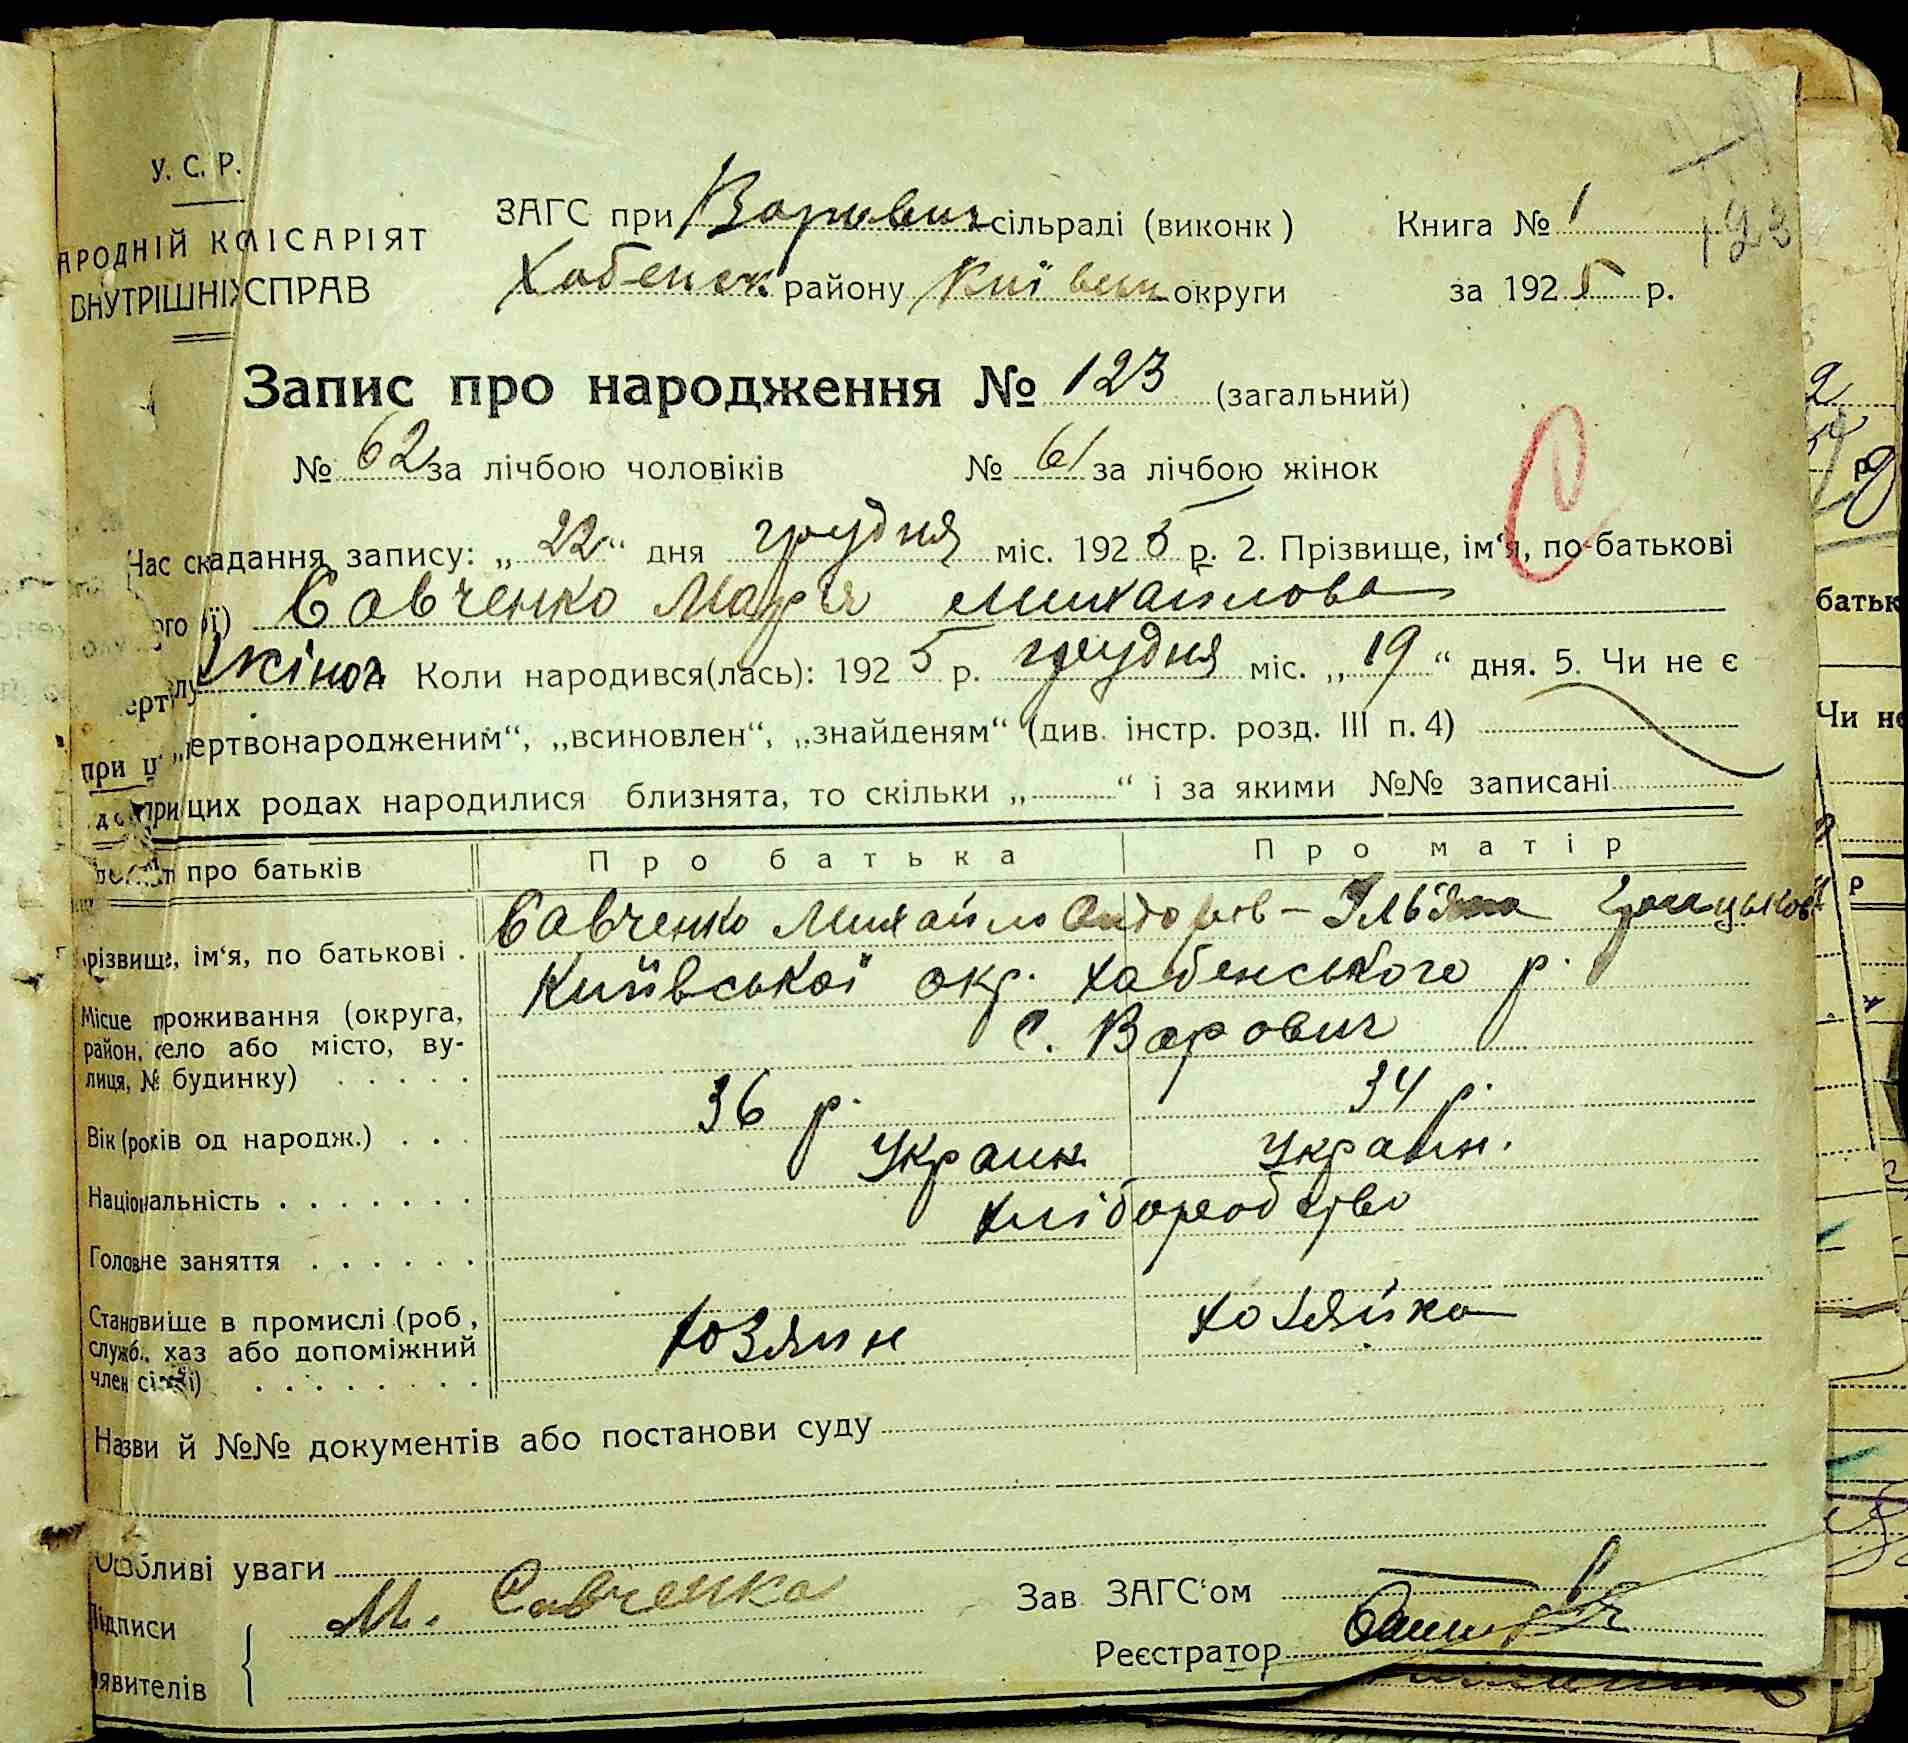 У. С. Р.
АРОДНІЙ КОМІСАРІЯТ
ВНУТРІШНІХ СПРАВ
ЗАГС при Варович сільраді (виконк)
Книга № 1
123
Хабенск району Київськ округи
за 1925 р.
Запис про народження № 123 (загальний)
№ 62 за лічбою чоловіків № 61 за лічбою жінок
С
Час складання запису: „22“ дня грудня міс. 1925 р. 2. Прізвище, ім‘я, по-батькові
ого її) Савченко Марія Михайлова
жіноч Коли народився(лась): 1925 р. грудня міс. „19“ дня. 5. Чи не є
„мертвонародженим“, „всиновлен“, „знайденям“ (див. інстр. розд. III п. 4)
при цих родах народилися близнята, то скільки „ “ і за якими №№ записані
про батьків Про батька Про матір
Прізвище, ім‘я, по батькові . Савченко Михайло
Місце проживання (округа, район, село або місто, ву-лиця, № будинку) . . . . . Київської окр. Хабенського р.
с. Варович
Вік (років од народж.) . . . 36 р. 34 р.
Національність . . . . . . . Украин Украин.
Головне заняття . . . . . . хліборобство
Становище в промислі (роб, служб., хаз або допоміжний член сімї) . . . . . . . . хозяин хозяйка
Назви й №№ документів або постанови суду
Особливі уваги
Підписи М. Савченко
Зав ЗАГС‘ом
Реєстратор
явителів
батьк
Чи не